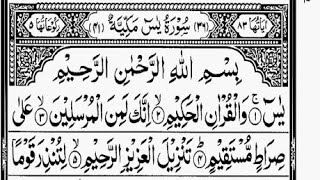 اٰيَاتُهَا ٨٣ (٣٦) سُوْرَةُ يٰسٓ مَكِّيَّةٌ (٤١) رُكُوْعَاتُهَا ٥
بِسْمِ اللّٰهِ الرَّحْمٰنِ الرَّحِيْمِ
يٰسٓ ۝١ وَالْقُرْاٰنِ الْحَكِيْمِ ۝٢ اِنَّكَ لَمِنَ الْمُرْسَلِيْنَ ۝٣ عَلٰى
صِرَاطٍ مُّسْتَقِيْمٍ ۝٤ تَنْزِيْلَ الْعَزِيْزِ الرَّحِيْمِ ۝٥ لِتُنْذِرَ قَوْمًا